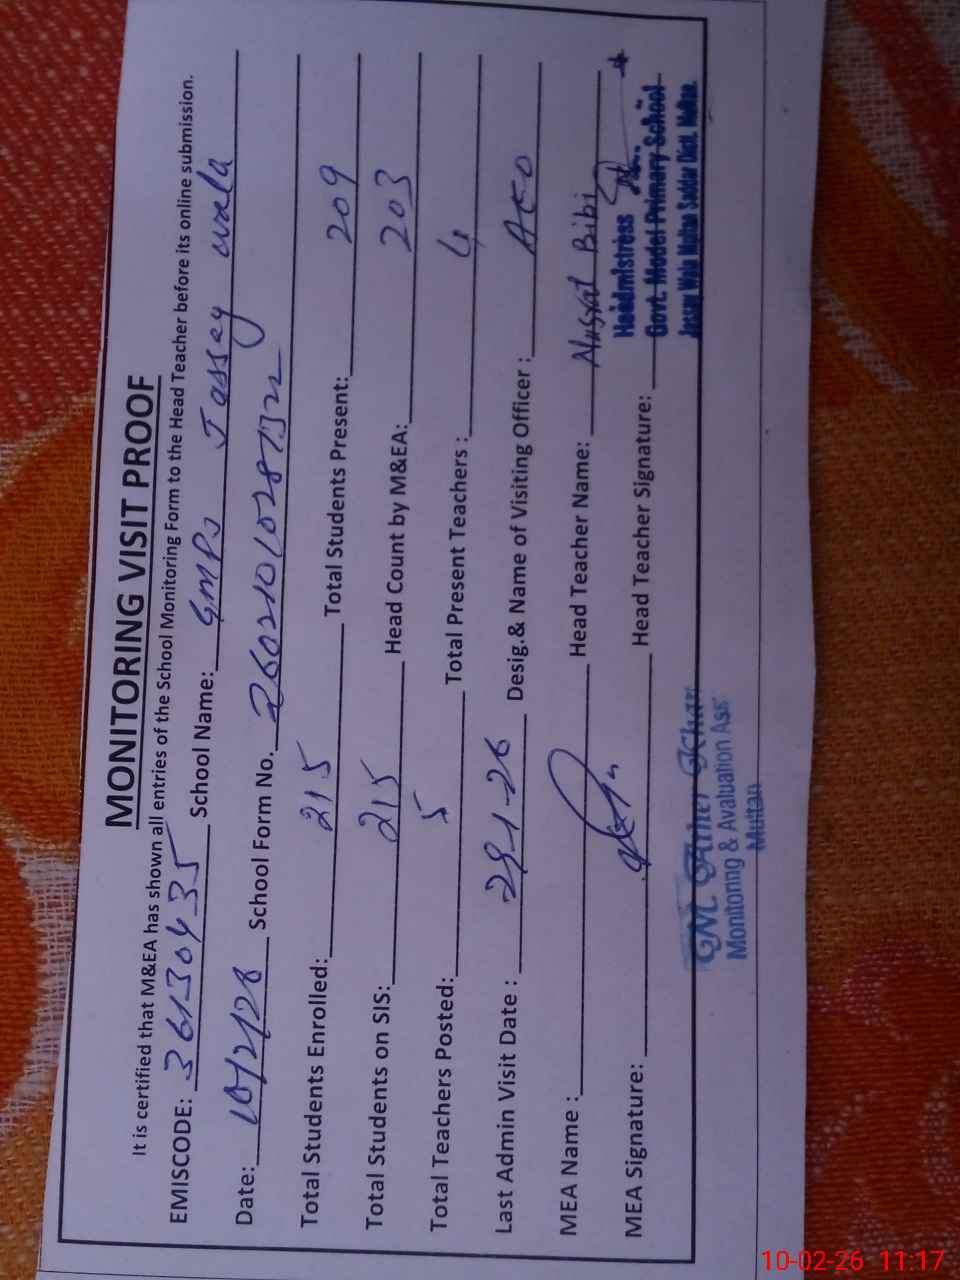 MONITORING VISIT PROOF
It is certified that M&EA has shown all entries of the School Monitoring Form to the Head Teacher before its online submission.
EMISCODE: 36130435 School Name: GMPS Jassey wala
Date: 10/2/26 School Form No.
Total Students Enrolled: 215 Total Students Present: 209
Total Students on SIS: 215 Head Count by M&EA: 203
Total Teachers Posted: 5 Total Present Teachers : 4
Last Admin Visit Date : 29-1-26 Desig.& Name of Visiting Officer : AEO
MEA Name : Head Teacher Name: Nusrat Bibi
MEA Signature: Head Teacher Signature:
Headmistress
Govt. Model Primary School
Jassay Wala Multan Saddar Distt. Multan.
Khan
Monitoring & Avaluation Ass
Multan
10-02-26 11:17